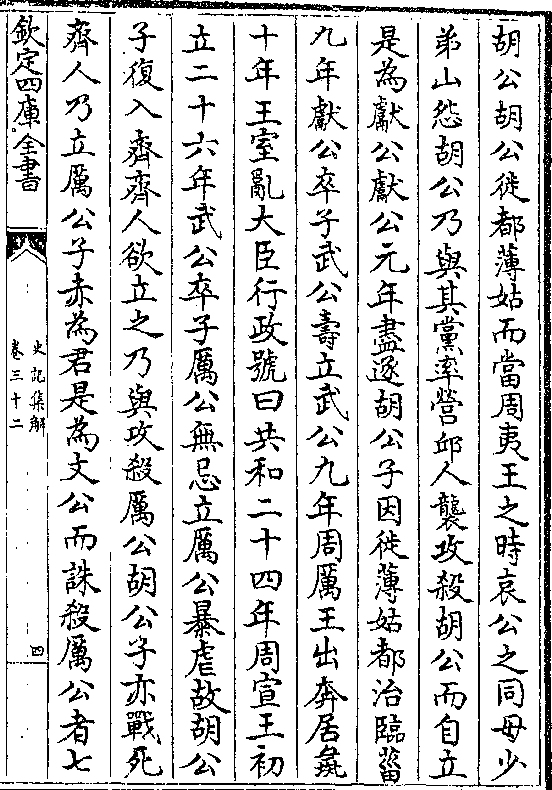 胡公胡公徙都薄姑而當周夷王之時哀公之同母少
弟山怨胡公乃與其黨率營邱人襲攻殺胡公而自立
是為獻公獻公元年盡逐胡公子因徙薄姑都治臨菑
九年獻公卒子武公壽立武公九年周厲王出奔居彘
十年王室亂大臣行政號曰共和二十四年周宣王初
立二十六年武公卒子厲公無忌立厲公暴虐故胡公
子復入齊齊人欲立之乃與攻殺厲公胡公子亦戰死
齊人乃立厲公子赤為君是為文公而誅殺厲公者七
欽定四庫全書
史記集解
卷三十二
四